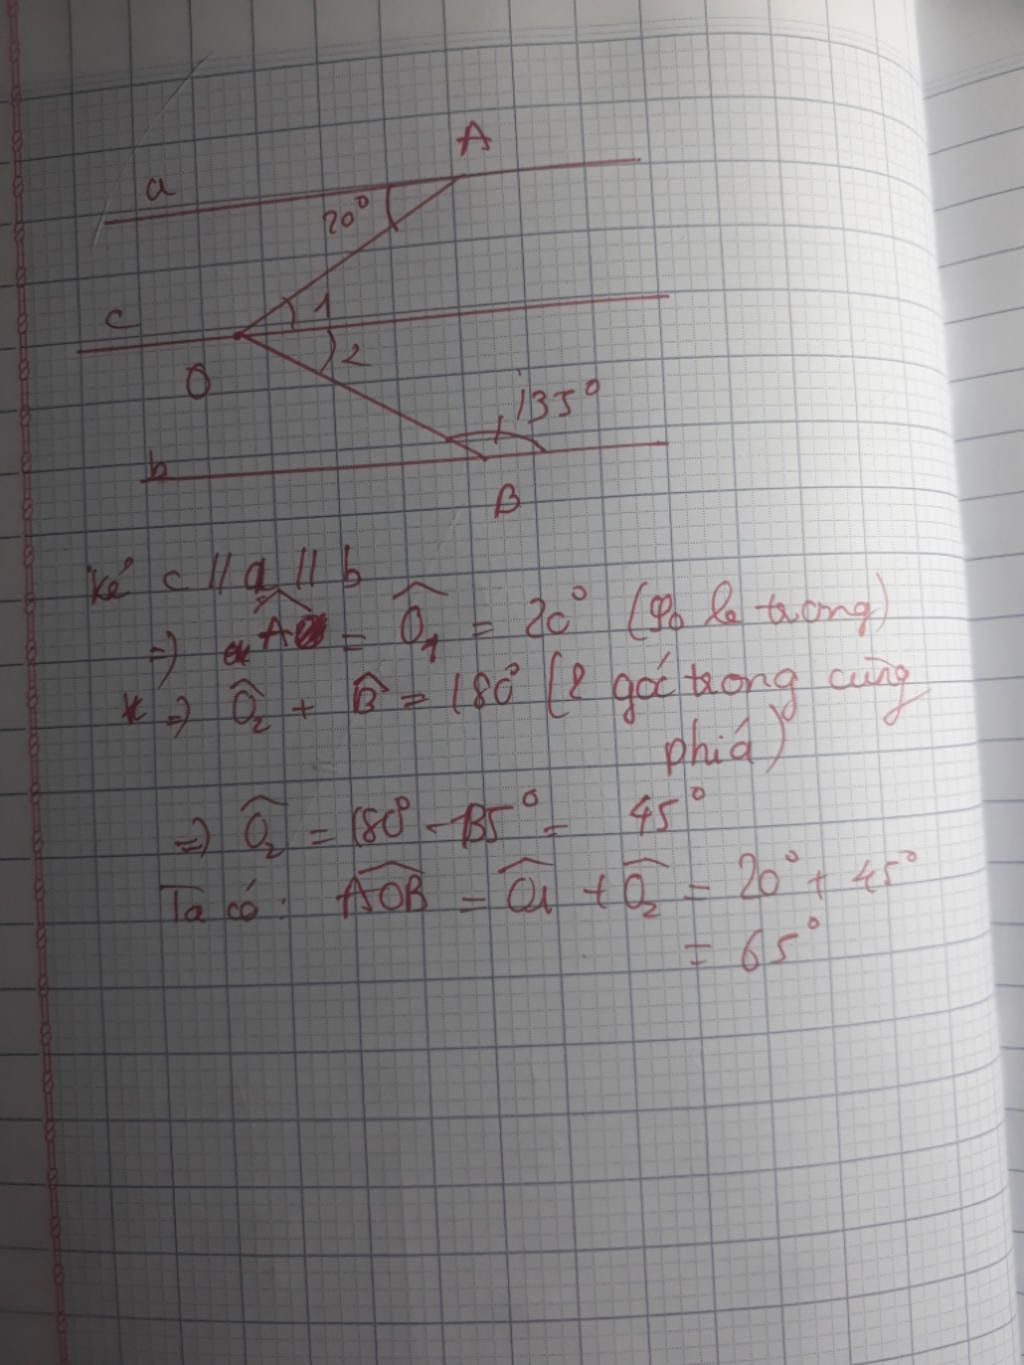 A
a
20°
1
c
2
O
135°
b
B
Kẻ c // a // b
=> A = O₁ = 20° (so le trong)
=> O₂ + B = 180° (2 góc trong cùng
phía)
=> O₂ = 180° - 135° = 45°
Ta có: AOB = O₁ + O₂ = 20° + 45°
= 65°